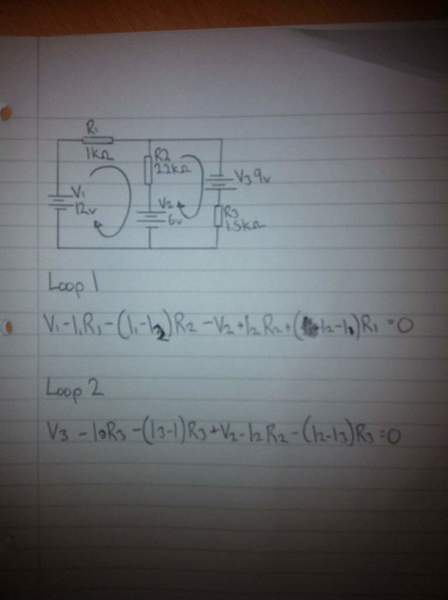 R1
1kΩ
R2
2.2kΩ
V3 9v
V1
12v
V2
6v
R3
1.5kΩ
Loop 1
V1-I1R1-(I1-I2)R2-V2+I2R2+(I2-I1)R1=0
Loop 2
V3-I2R3-(I3-1)R3+V2-I2R2-(I2-I3)R3=0